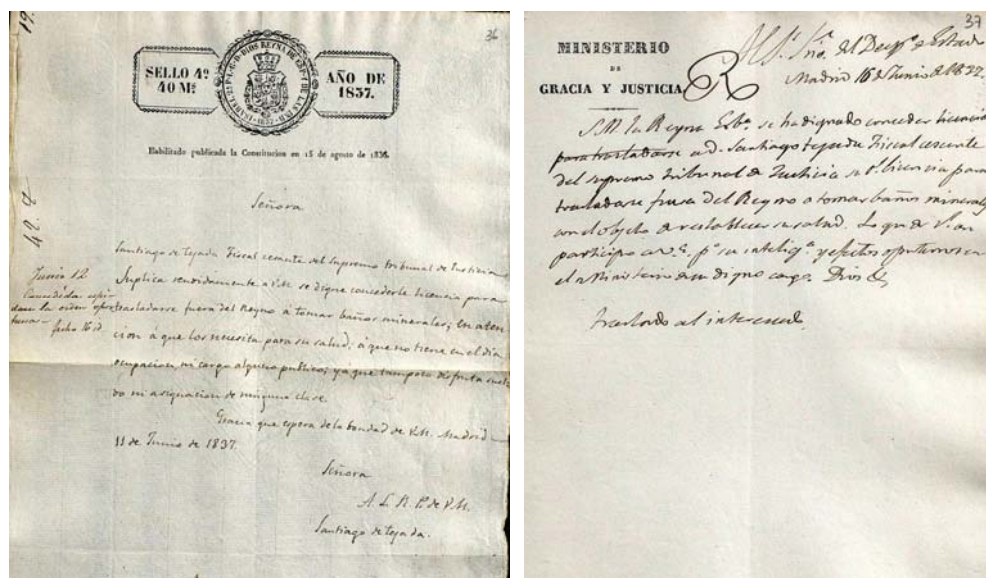 36
SELLO 4º
40 Ms
AÑO DE
1837.
ISABEL 2ª P. L. G. D. DIOS REYNA DE ESP. Y DE LAS IND.
1837
Habilitado publicada la Constitucion en 15 de agosto de 1836.
Señora
Santiago de Tejada Fiscal cesante del Supremo tribunal de Justicia
Suplica rendidamente a V.M. se digne concederle licencia para
trasladarse fuera del Reyno á tomar baños minerales; en aten
cion á que los necesita para su salud; á que no tiene en el dia
ocupacion, ni cargo alguno publico; ya que tampoco disfruta suel
do ni asignacion de ninguna clase.
Gracia que espera de la bondad de V.M. Madrid
11 de Junio de 1837.
Señora
A. L. R. P. de V.M.
Santiago de Tejada.
Junio 12
Concedida; espi
dase la orden opor
tuna
fecho 16 id
37
MINISTERIO
DE
GRACIA Y JUSTICIA
Al Sr. Srio. del Despº de Estado
Madrid 16 de Junio de 1837.
S.M. la Reyna Gobª se ha dignado conceder licencia
para trasladarse a D. Santiago Tejada Fiscal cesante
del supremo tribunal de Justicia su Rl licencia para
trasladarse fuera del Reyno a tomar baños minerales
con el objeto de restablecer su salud. Lo que de Rl orn
participo a V.E. pª su inteligª y efectos oportunos en
el Ministerio de su digno cargo. Dios &
traslado al interesado.